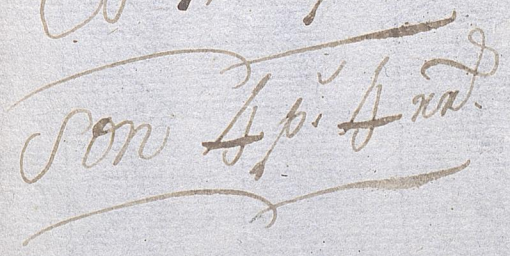 Son 4 p.s 4 rr.s